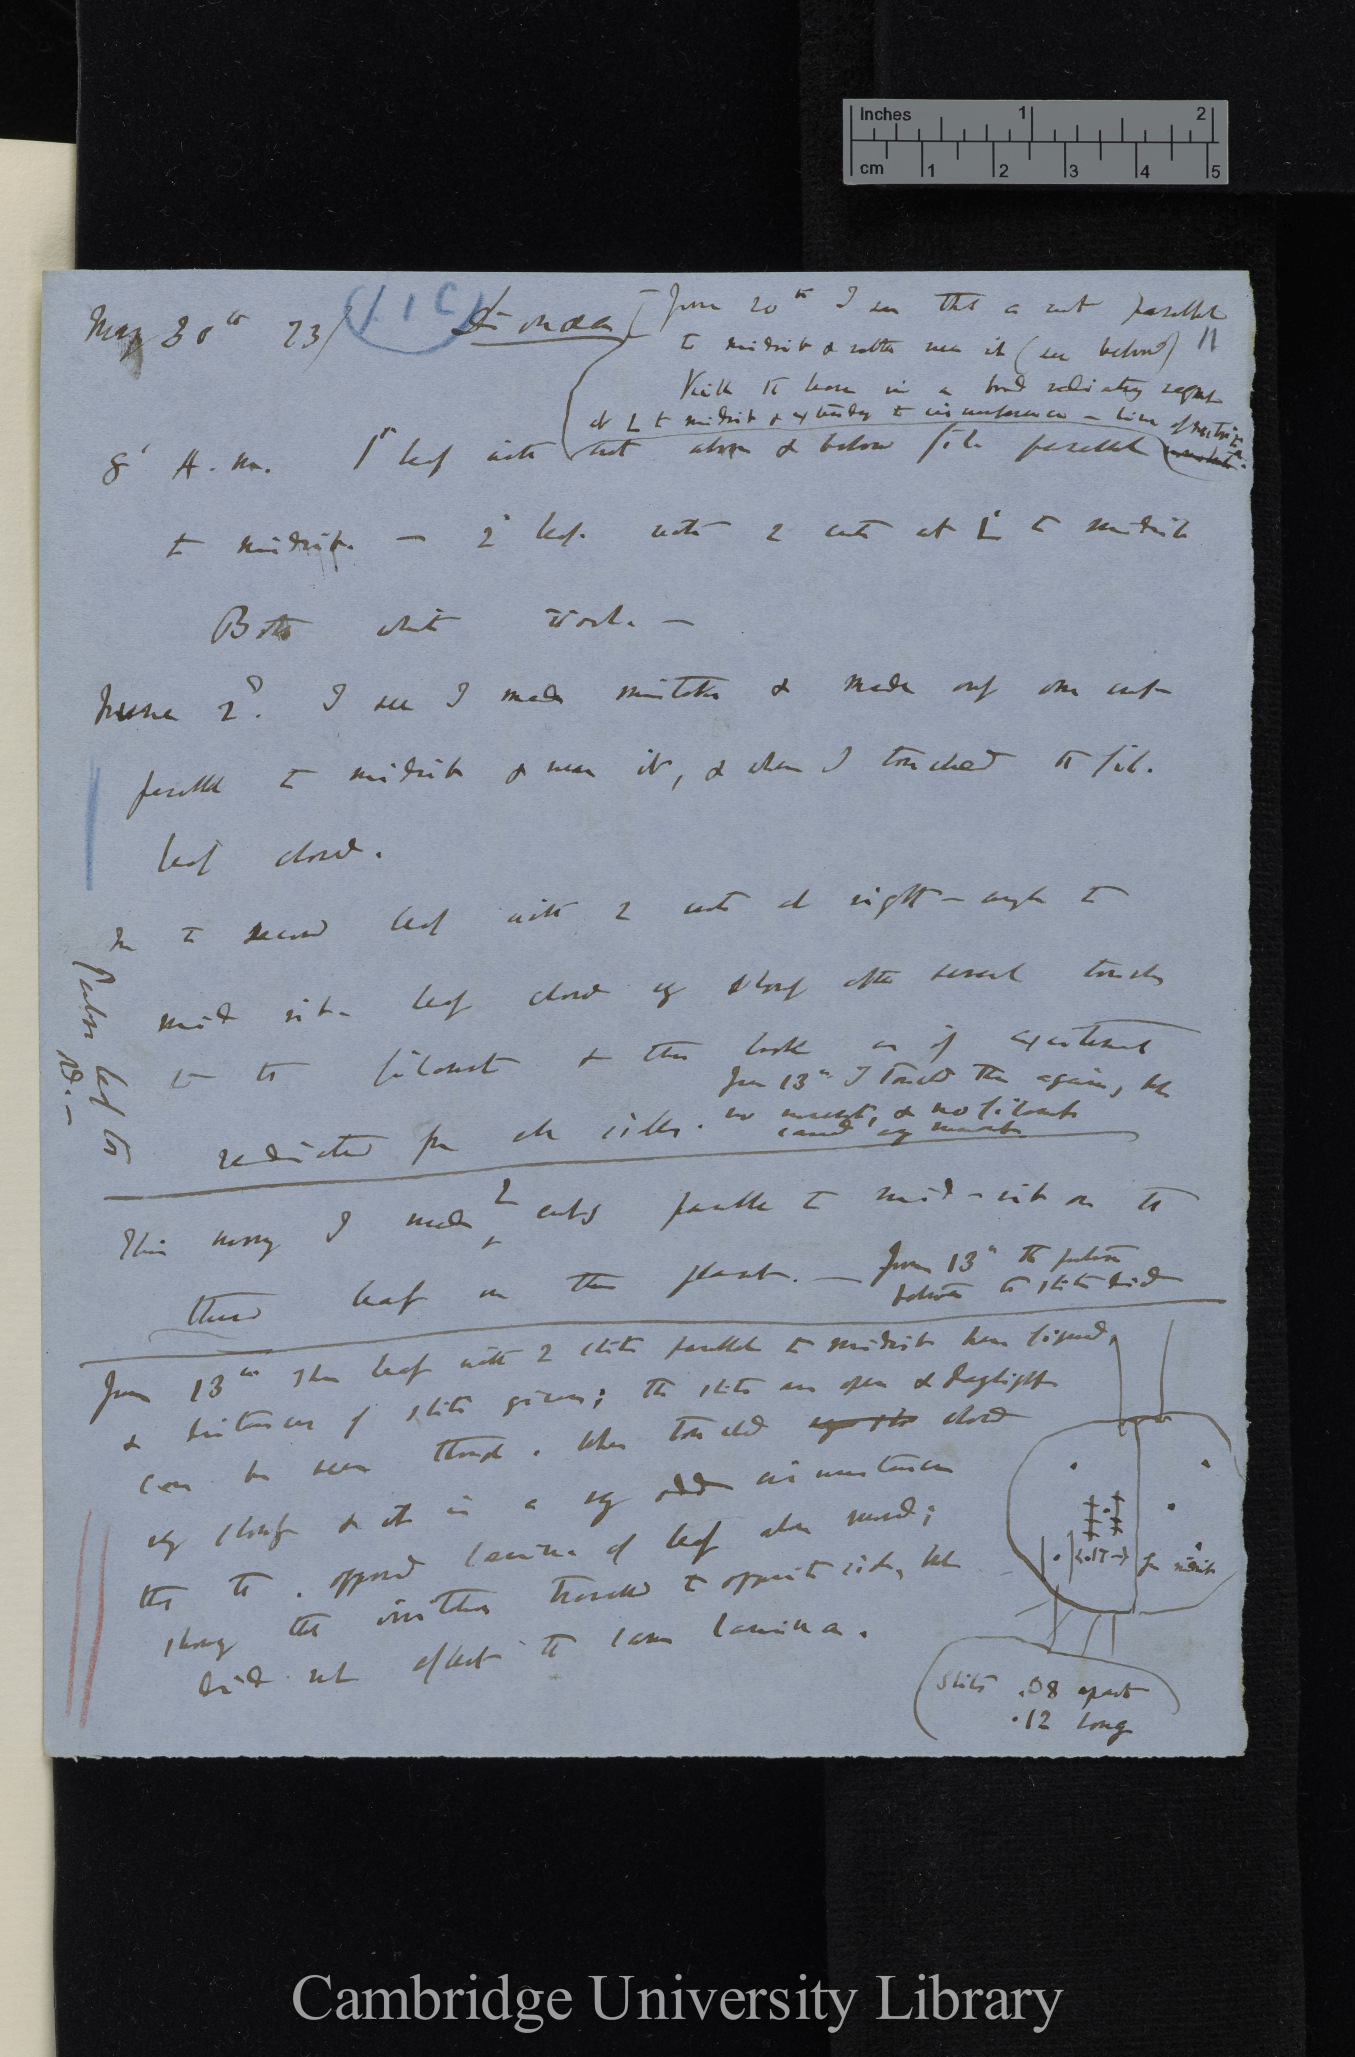 Inches 1 2
cm 1 2 3 4 5
May 30th 73/ (11C) Dionaea
[June 20th I see that a cut parallel
to midrib & rather near it (see below) 11
Kills the leaf in a broad radiating segment
at L to midrib & extending to circumference — line of
8' A.m. 1st leaf with cut above & below fil. parallel
to midrib. — 2d leaf. with 2 cuts at L to midrib
Both white
June 2d. I see I made mistake & made only one cut
parallel to midrib & near it, & when I touched the fil.
leaf closed.
In the second leaf with 2 cuts at right-angles to
mid rib. leaf closed vy slowly after several touches
to the filament & this looks as if excitement
radiated from all sides.
June 13th I touched them again, but
no movement, & no filaments
caused any movement
led to
This morning I made 2 cuts parallel to mid-rib on the
third leaf on this plant. —
June 13th the
between the slits died
June 13th This leaf with 2 slits parallel to midrib here figured,
& distances of slits given; the slits are open & daylight
can be seen through. When touched closed
vy slowly & it is a vy odd circumstance
that the opposed lamina of leaf alone moved;
showing that the irritation travelled to opposite side, but
did not affect the same lamina.
from midrib
Slits .08 apart
.12 long
Cambridge University Library